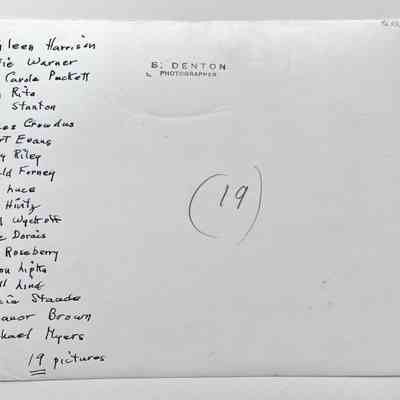 leen Harrison
ie Warner
Carole Puckett
Rita
Stanton
es Crowdus
T Evans
y Riley
ld Forney
Luce
Hintz
d Wyckoff
e Dorais
Roseberry
on Lipke
ll Lind
cia Staade
anor Brown
chael Myers
19 pictures
B. DENTON
PHOTOGRAPHER
(19)